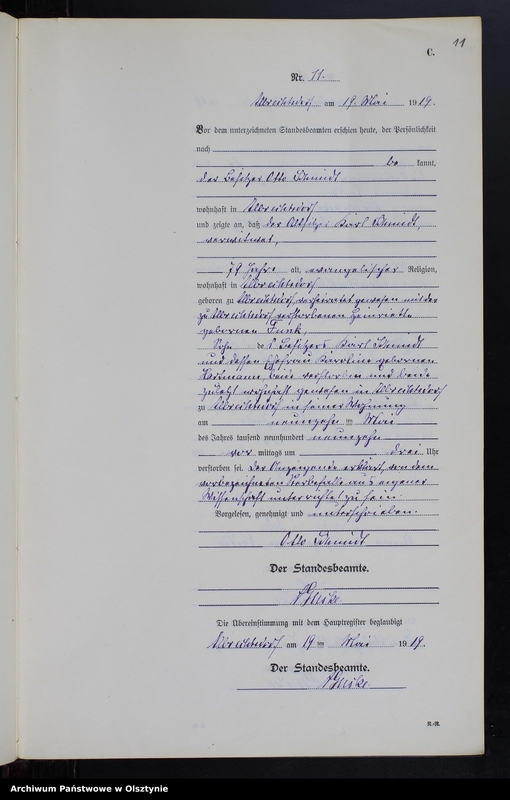 11
C.
Nr. 11.
Albrechtsdorf am 19. Mai 1919.
Vor dem unterzeichneten Standesbeamten erschien heute, der Persönlichkeit
nach
be kannt,
der Besitzer Otto Schmidt
wohnhaft in Albrechtsdorf
und zeigte an, daß der Altsitzer Karl Schmidt,
verwitwet,
79 Jahre alt, evangelischer Religion,
wohnhaft in Albrechtsdorf
geboren zu Albrechtsdorf, verheiratet gewesen mit der
zu Albrechtsdorf verstorbenen Henriette
gebornen Funk,
Sohn des Besitzers Karl Schmidt
und dessen Ehefrau Karoline gebornen
beide verstorben und beide
zuletzt wohnhaft gewesen in Albrechtsdorf
zu Albrechtsdorf in seiner Wohnung
am neunzehn ten Mai
des Jahres tausend neunhundert neunzehn
vor mittags um drei Uhr
verstorben sei. Der Anzeigende erklärt, von dem
vorbezeichneten Sterbefalle aus eigener
Wissenschaft unterrichtet zu sein.
Vorgelesen, genehmigt und unterschrieben.
Otto Schmidt
Der Standesbeamte.
Die Übereinstimmung mit dem Hauptregister beglaubigt
Albrechtsdorf am 19 ten Mai 1919.
Der Standesbeamte.
Archiwum Państwowe w Olsztynie